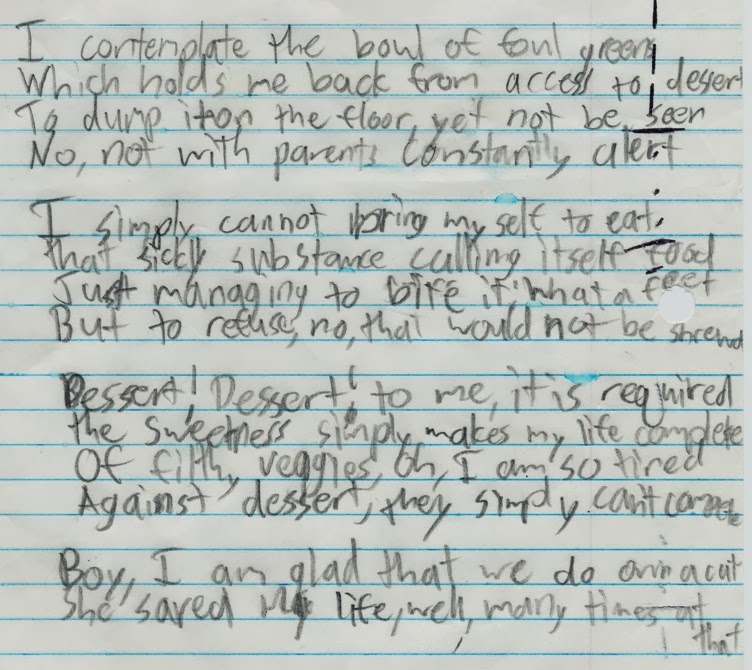 I contemplate the bowl of foul greens
Which holds me back from access to desert
To dump it on the floor, yet not be seen
No, not with parents constantly alert
I simply cannot bring my self to eat
that sickly substance calling itself food
Just managing to bite it, what a feet
But to refuse, no, that would not be shrewd
Dessert! Dessert! to me, it is required
the sweetness simply makes my life complete
Of filth, veggies, oh, I am so tired
Against dessert, they simply can't compete
Boy, I am glad that we do own a cat
She saved my life, well, many times at
that